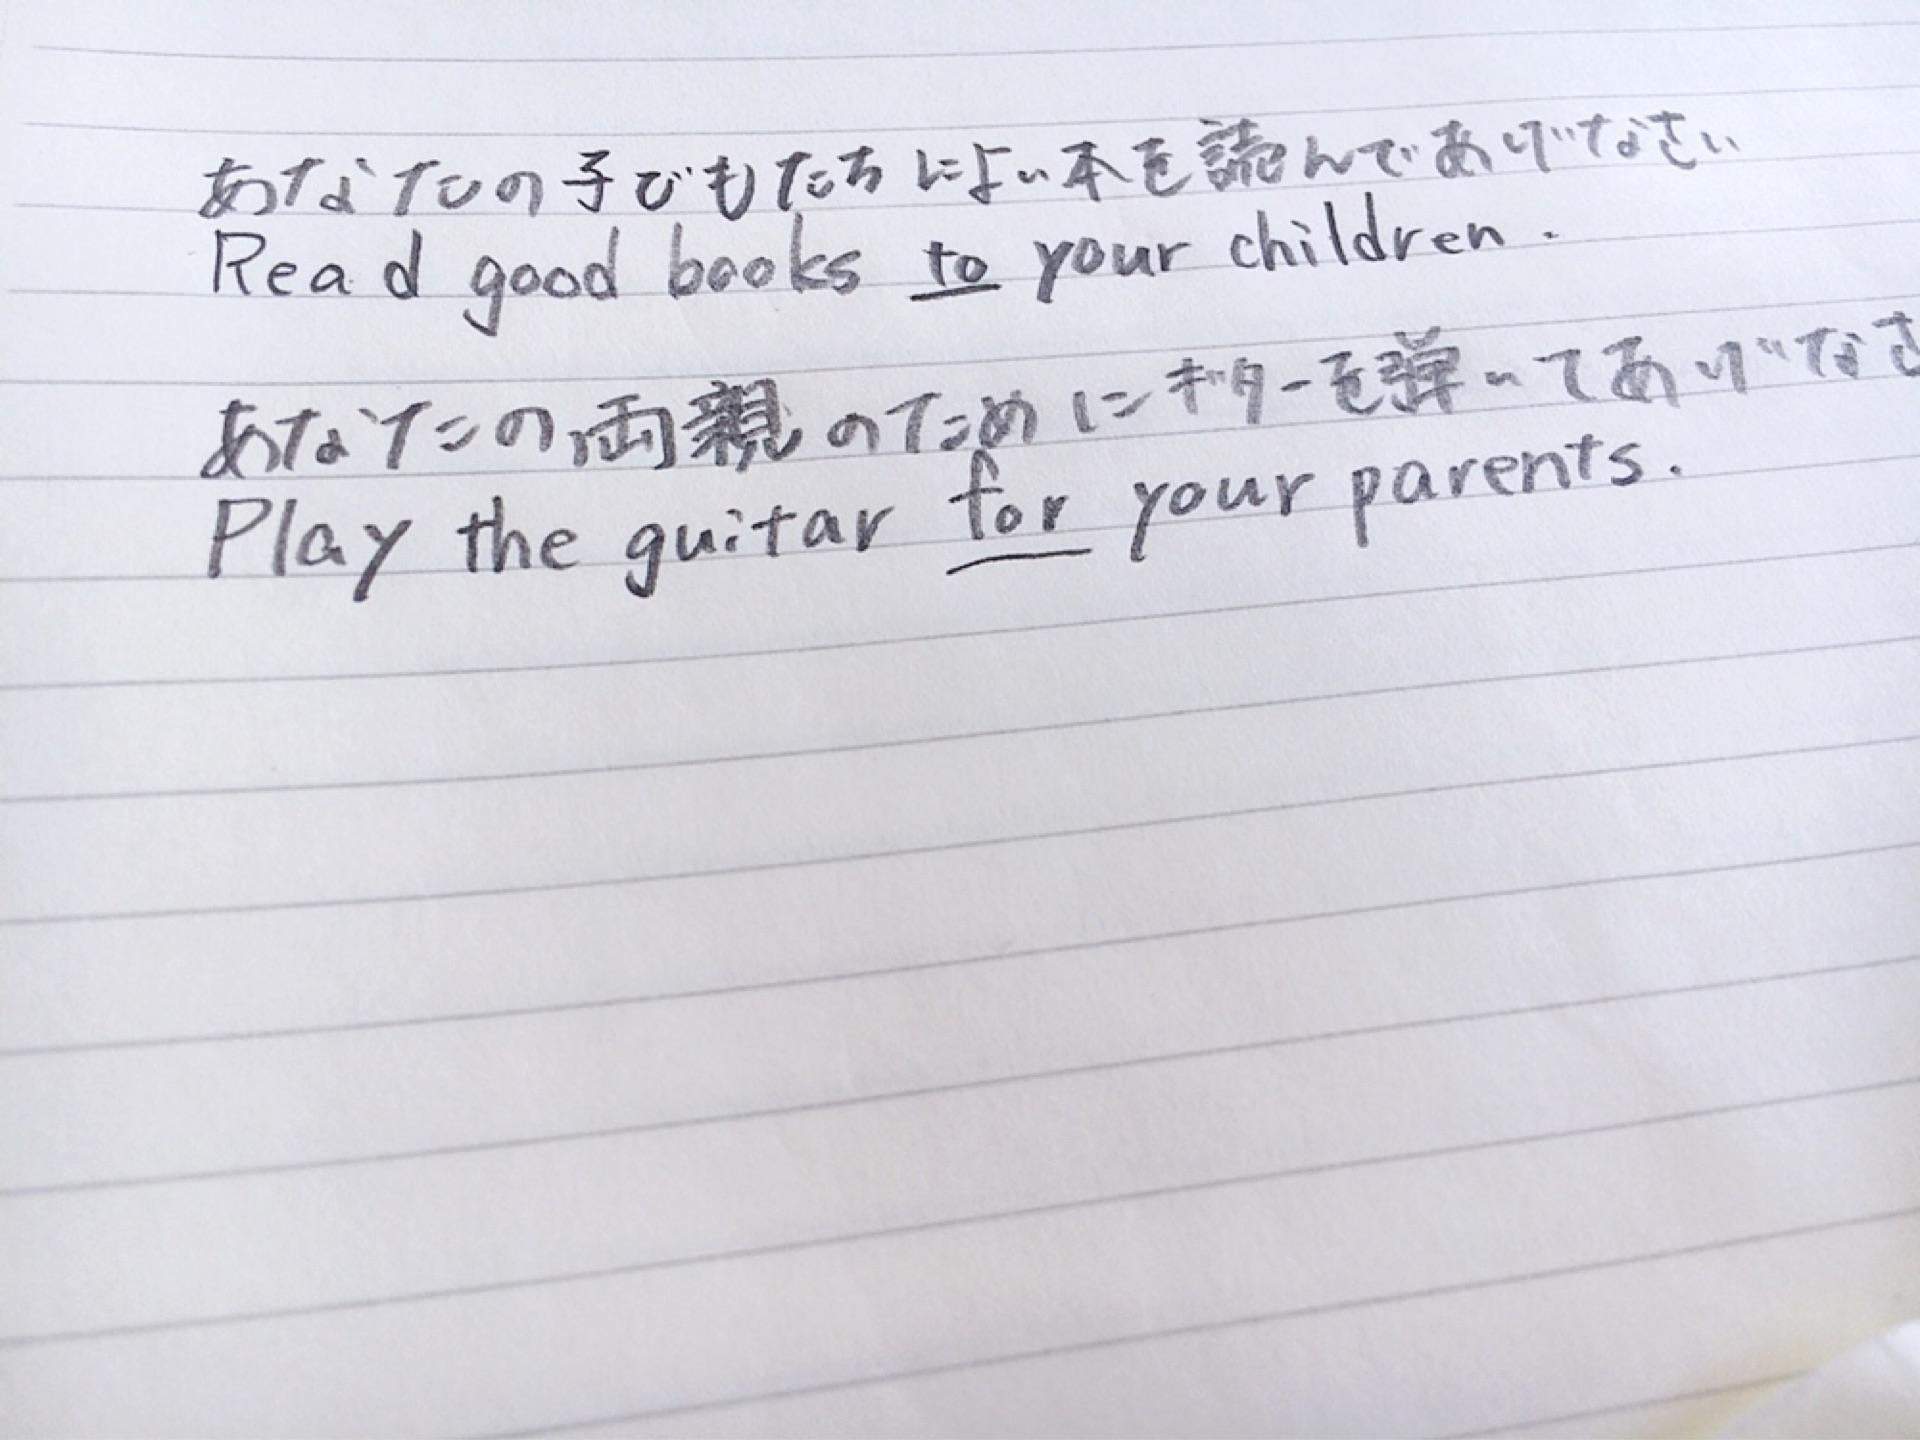 あなたの子どもたちによい本を読んであげなさい
Read good books to your children.
あなたの両親のためにギターを弾いてあげなさ
Play the guitar for your parents.